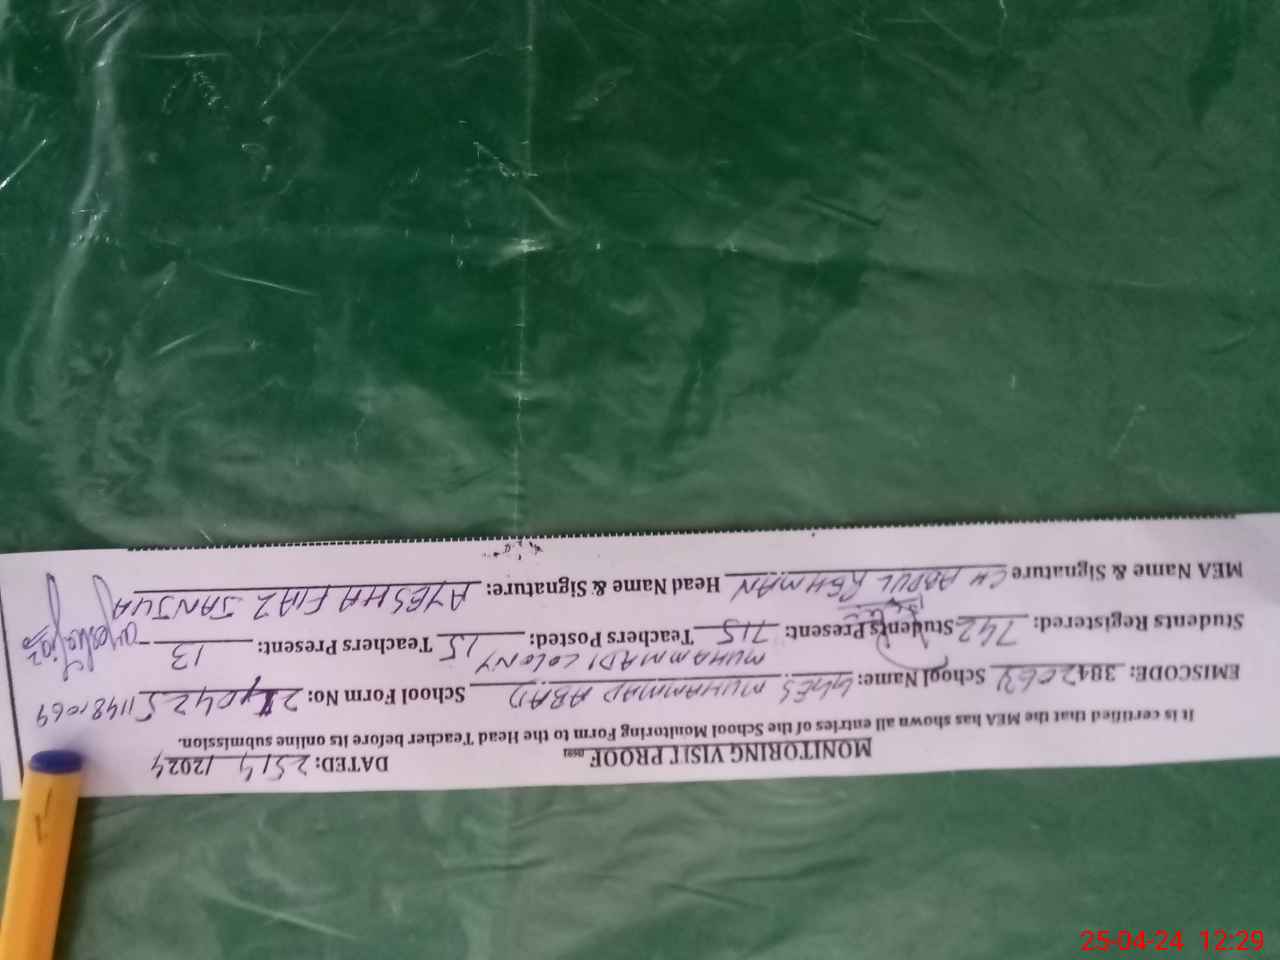 MONITORING VISIT PROOF DATED: 25/4/2024
It is certified that the MEA has shown all entries of the School Monitoring Form to the Head Teacher before its online submission.
EMISCODE: 384 School Name: MUHAMMAD ABAD School Form No:
MUHAMMADI COLONY
Students Registered: 742 Students Present: 715 Teachers Posted: 15 Teachers Present: 13
MEA Name & Signature CH ABDUL REHMAN Head Name & Signature: AYESHA FIAZ JANJUA
25-04-24 12:29